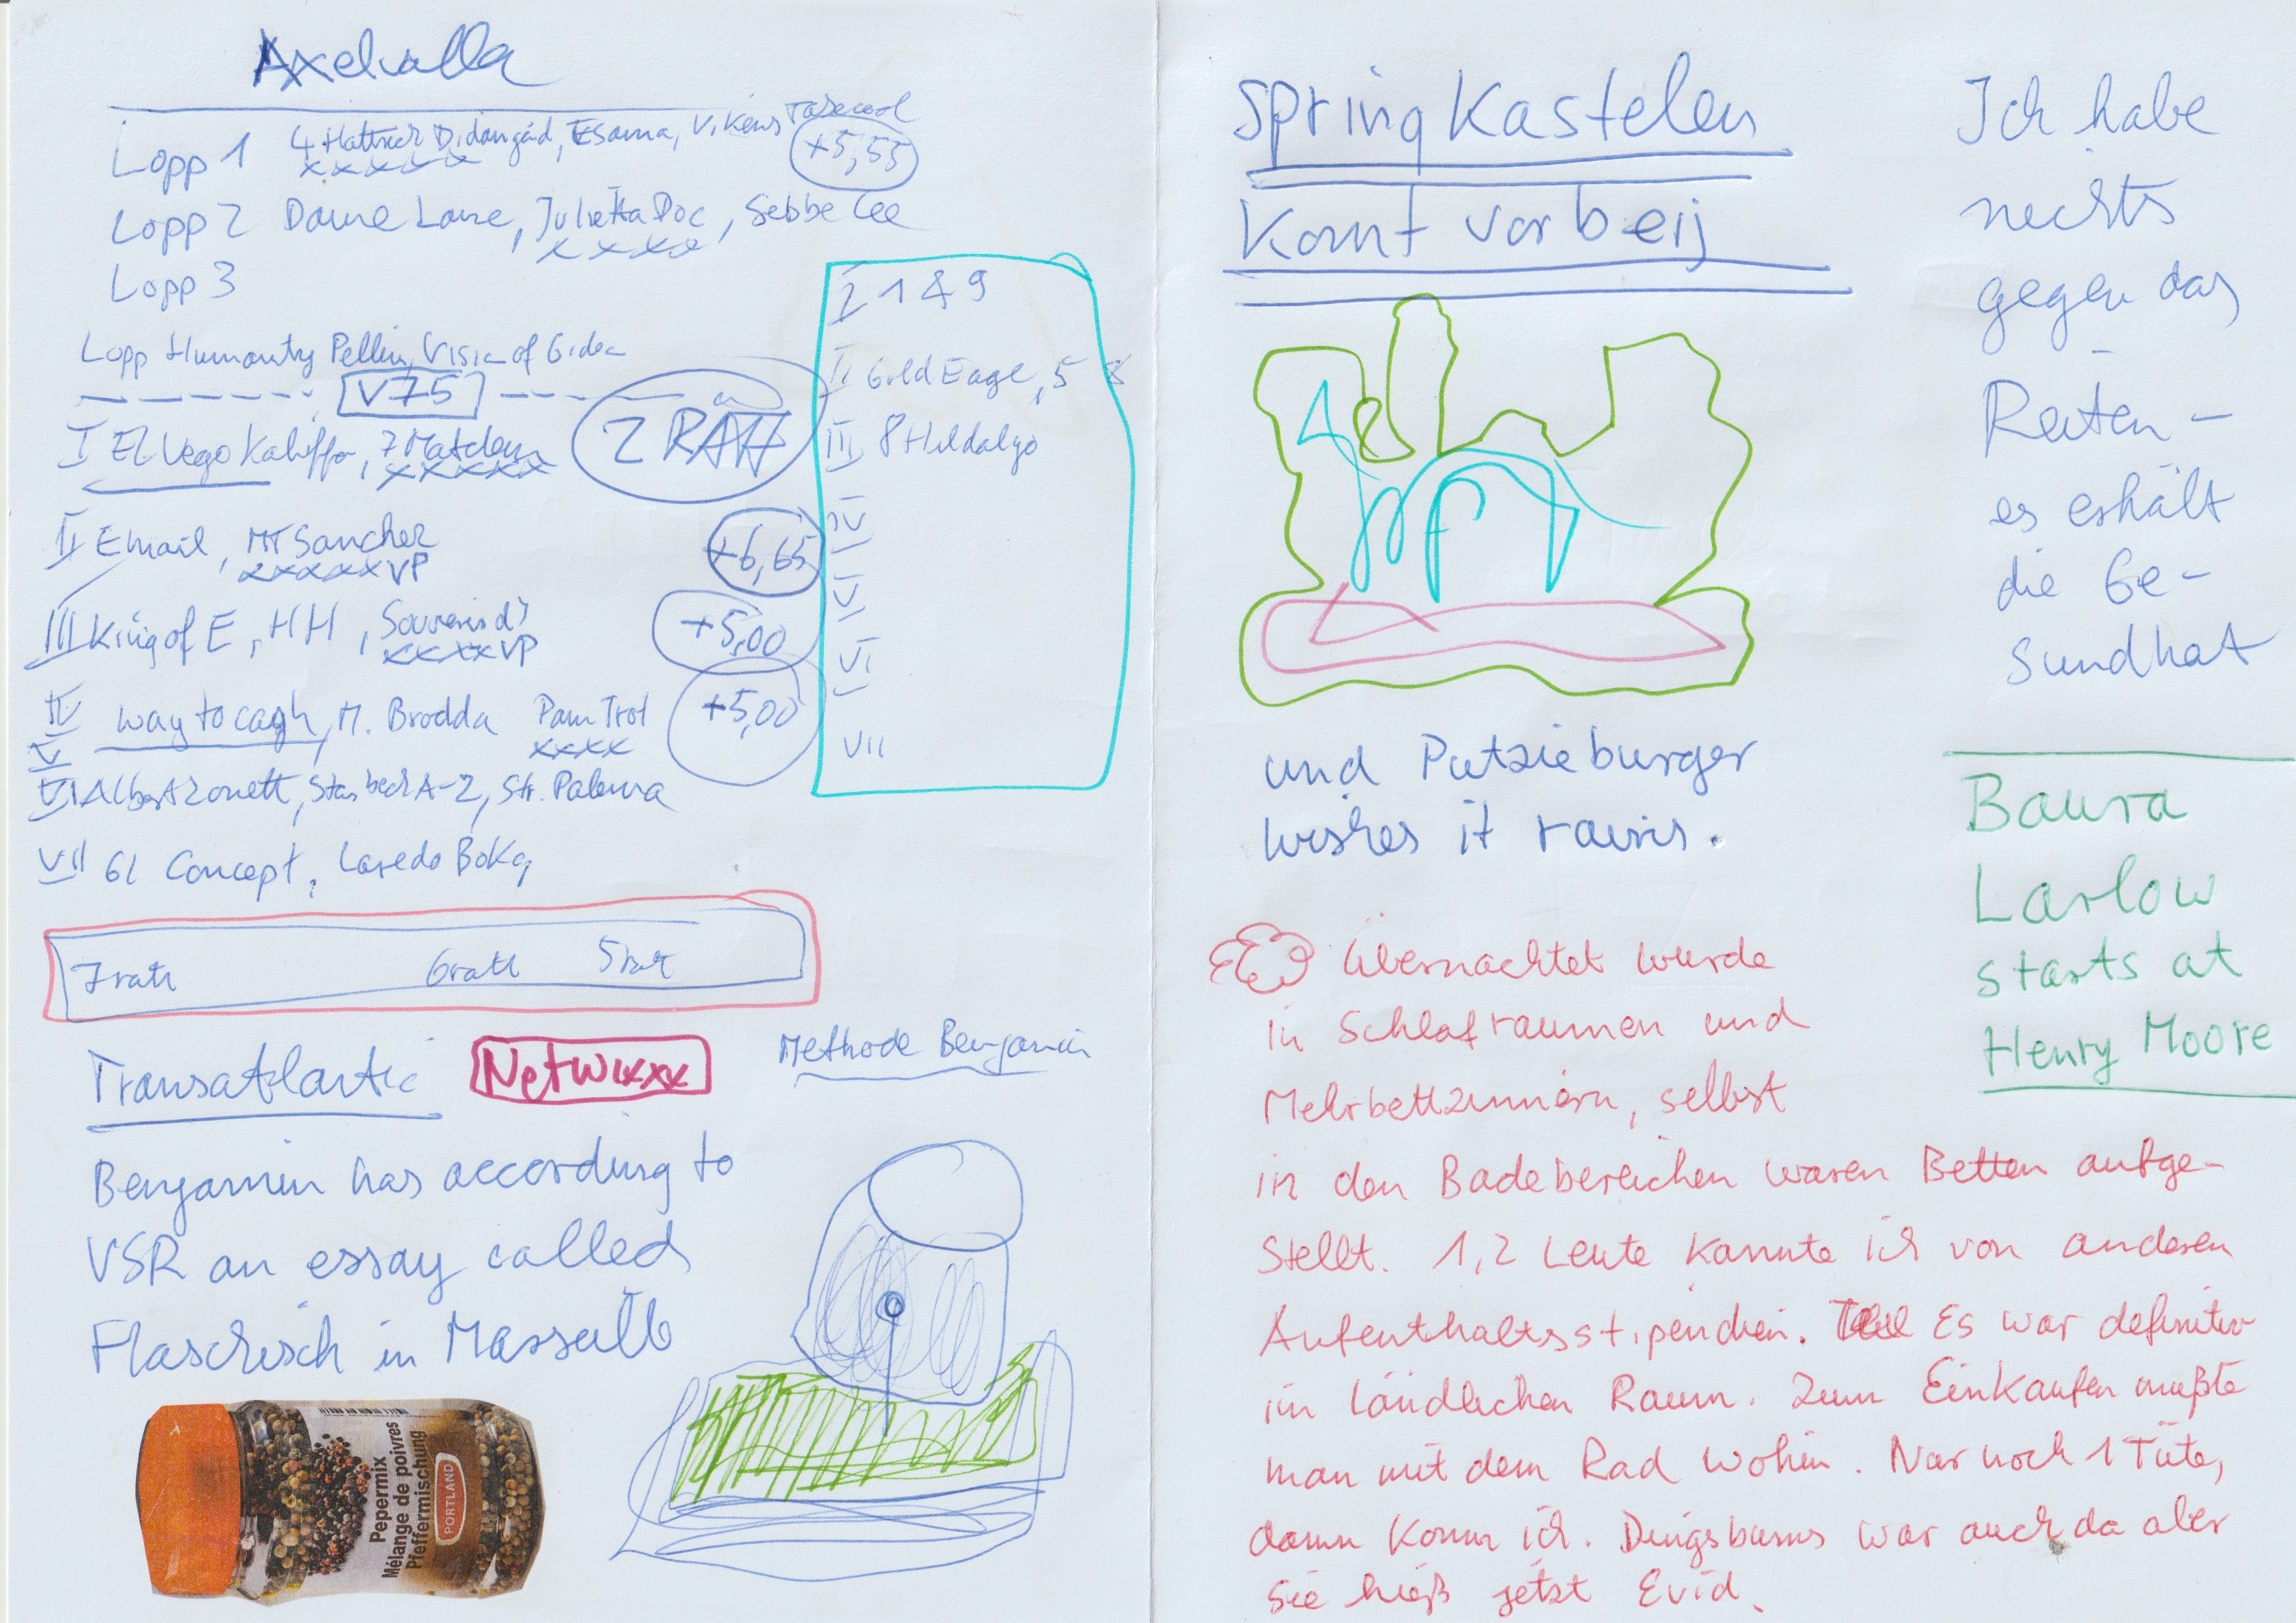 Axevalla
Lopp 1 4 Hattrick Didangád, Esama, Vikens
+5,55
Lopp 2 Dame Lane, Julietta Doc, Sebbe Lee
xxxx
Lopp 3
Lopp Humanity Pellini, Vision of Gidea
V75
I El Vego Kaliffo, 7 Matcless
xxxxx
2 RÄTT
II Email, MT Sancher
xxxxx VP
+6,65
III King of E, HH, Souverind's
xxxx VP
+5,00
IV way to cash, M. Brodda Pam Trot
xxxx
+5,00
V
VI Albert Zonett, Starbeck A-2, Str. Palema
VII GL Concept, Laredo Boko
I 1 & 9
II Gold Eage, 5 8
III 8 Hildalgo
IV
V
VI
VII
7 rätt 6 rätt 5 rätt
Transatlantic
Netwixxx
Methode Benjamin
Benjamin has according to
VSR an essay called
Flaschisch in Massailb
Pepermix
Mélange de poivres
Pfeffermischung
PORTLAND
Springkastelen
Komt vorbeij
und Putzieburger
wishes it rains.
Ich habe
nichts
gegen das
Reiten –
es erhält
die Ge-
sundheit
Baura
Larlow
starts at
Henry Moore
Übernachtet wurde
in Schlafräumen und
Mehrbettzimmern, selbst
in den Badebereichen waren Betten aufge-
stellt. 1,2 Leute kannte ich von anderen
Aufenthaltsstipendien. Es war definitiv
im ländlichen Raum. Zum Einkaufen mußte
man mit dem Rad wohin. Nur noch 1 Tüte,
dann komm ich. Dingsbums war auch da aber
sie hieß jetzt Evid.